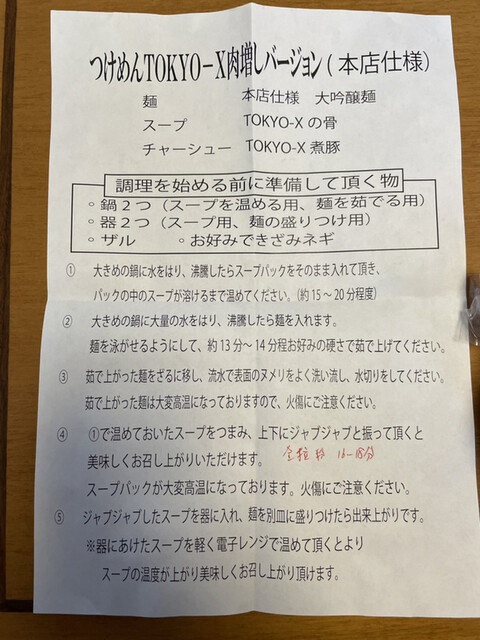 つけめんTOKYO－X肉増しバージョン(本店仕様)
麺 本店仕様 大吟醸麺
スープ TOKYO-Xの骨
チャーシュー TOKYO-X煮豚
調理を始める前に準備して頂く物
◦鍋２つ（スープを温める用、麺を茹でる用）
◦器２つ（スープ用、麺の盛りつけ用）
◦ザル ◦お好みできざみネギ
① 大きめの鍋に水をはり、沸騰したらスープパックをそのまま入れて頂き、
パックの中のスープが溶けるまで温めてください。(約15～20分程度)
② 大きめの鍋に大量の水をはり、沸騰したら麺を入れます。
麺を泳がせるようにして、約13分～14分程お好みの硬さで茹で上げてください。
③ 茹で上がった麺をざるに移し、流水で表面のヌメリをよく洗い流し、水切りをしてください。
茹で上がった麺は大変高温になっておりますので、火傷にご注意ください。
④ ①で温めておいたスープをつまみ、上下にジャブジャブと振って頂くと
美味しくお召し上がりいただけます。 全粒粉 16–18分
スープパックが大変高温になっております。火傷にご注意ください。
⑤ ジャブジャブしたスープを器に入れ、麺を別皿に盛りつけたら出来上がりです。
※器にあけたスープを軽く電子レンジで温めて頂くとより
スープの温度が上がり美味しくお召し上がり頂けます。